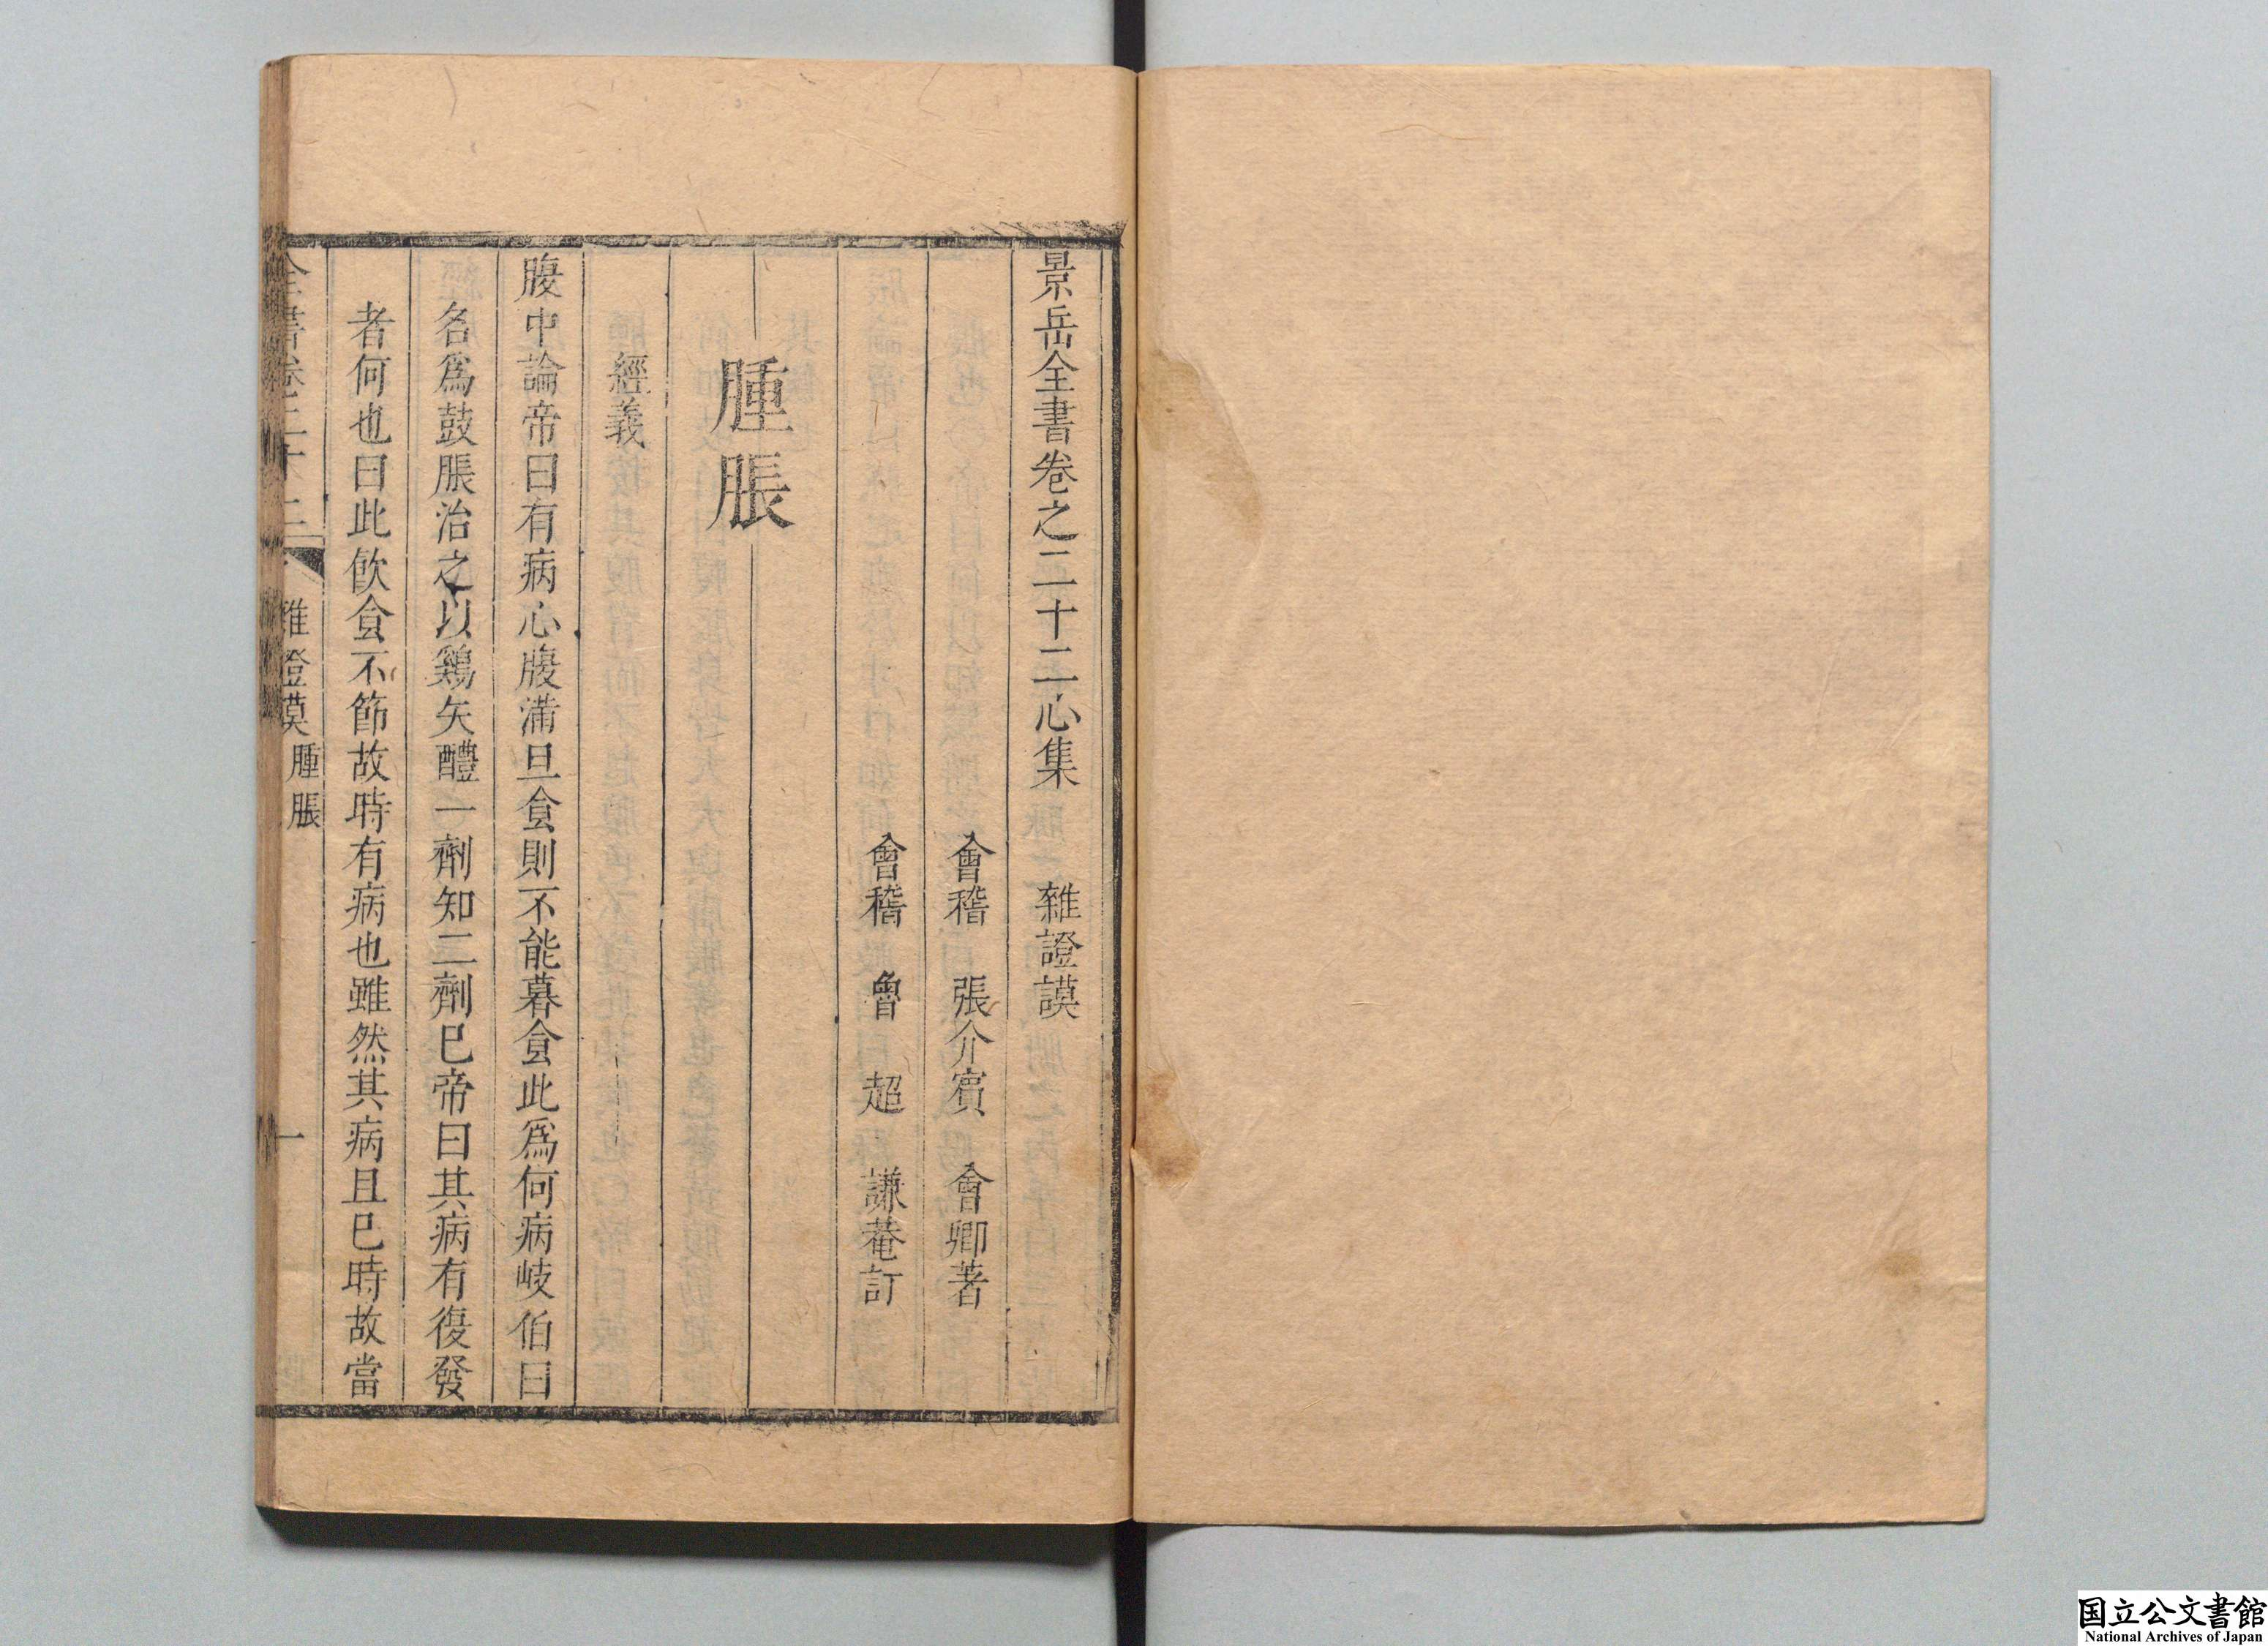 景岳全書卷之二十二心集　雜證謨
會稽　張介賓　會卿著
會稽　魯　超　謙菴訂
腫脹
經義
腹中論帝曰有病心腹滿旦食則不能暮食此爲何病岐伯曰
名爲鼓脹治之以鷄矢醴一劑知二劑已帝曰其病有復發
者何也曰此飲食不節故時有病也雖然其病且已時故當
全書卷二十二　雜證謨　腫脹　一
国立公文書館
National Archives of Japan